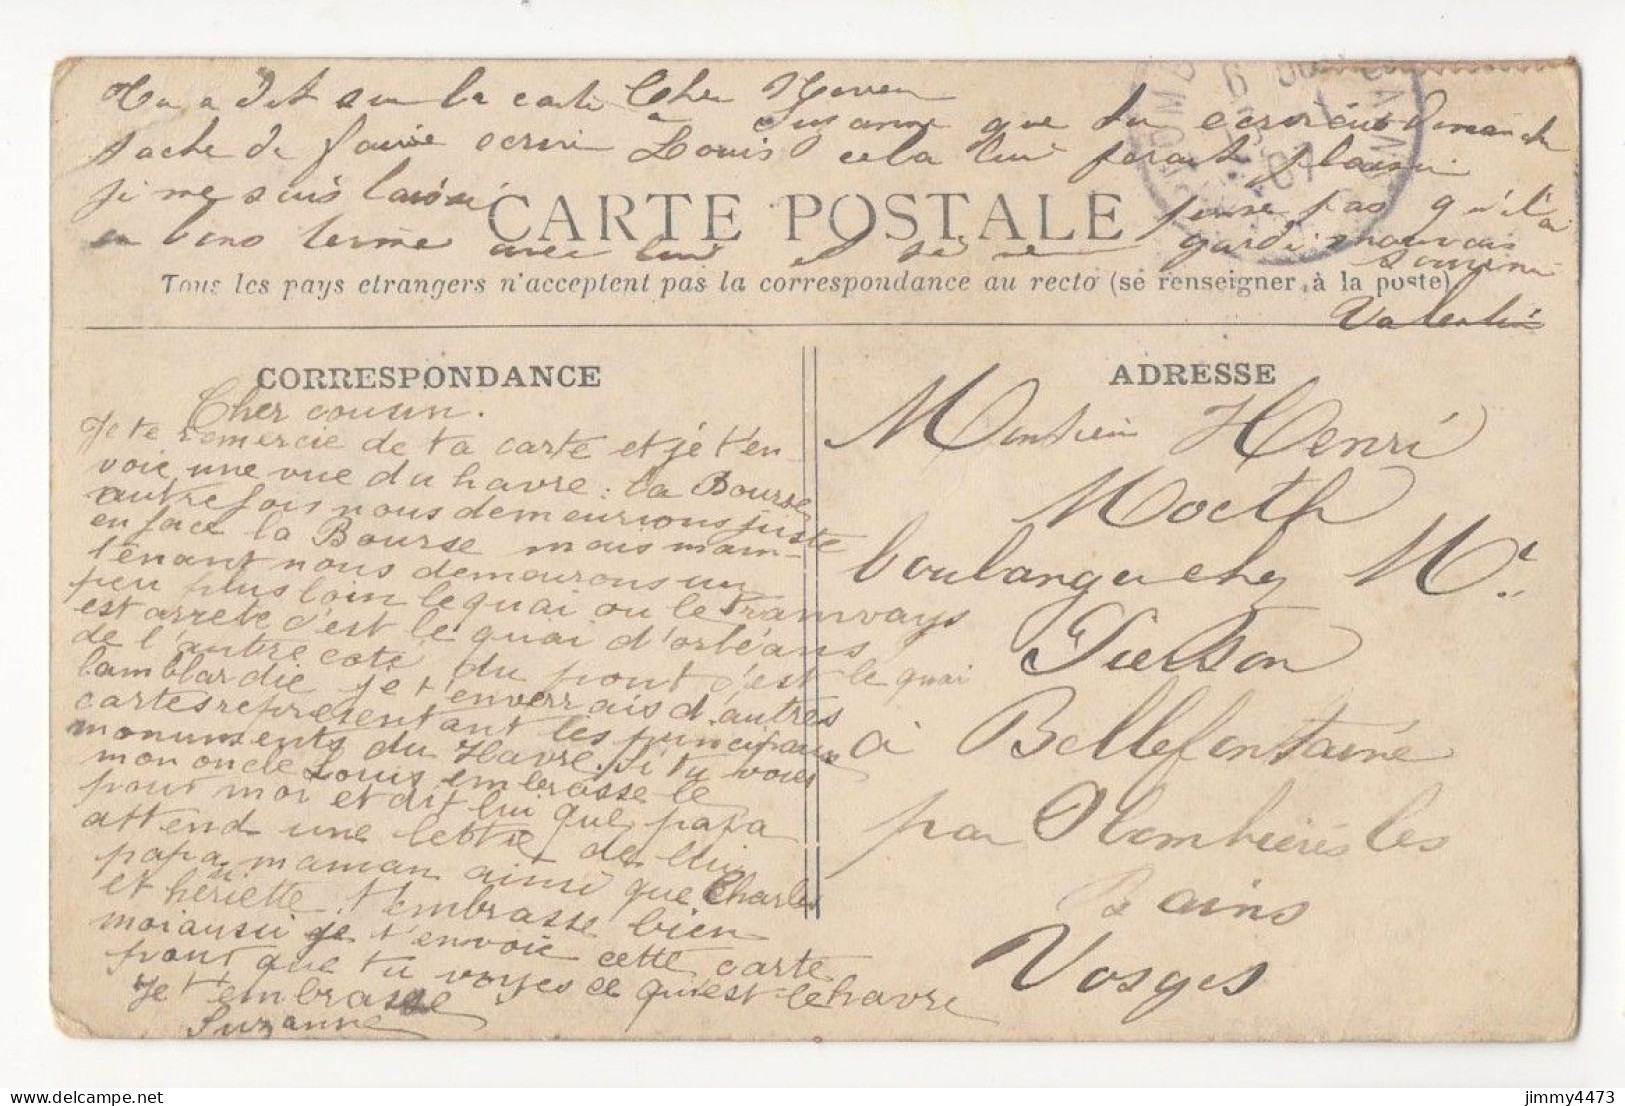 Tu a dit sur la carte Cher Neveu
à Suzanne que tu écrirais Dimanche
tache de faire ecrire Louis cela lui ferait plaisir
je me suis laissé
CARTE POSTALE
pense pas qu'il ai
en bons terme avec lui et je ne
garde mauvais
souvenir
Tous les pays etrangers n'acceptent pas la correspondance au recto (se renseigner à la poste)
Valentin
CORRESPONDANCE
Cher cousin.
Je te remercie de ta carte et je t'en
voie une vue du havre : la Bourse
autrefois nous demeurions juste
en face la Bourse mais main-
tenant nous demeurons un
peu plus loin le quai ou le Tramways
est arrete c'est le quai d'orléans
de l'autre coté du pont c'est le quai
lamblardie je t'enverrais d'autres
cartes representant les principaux
monuments du Havre. Si tu vois
mon oncle Louis embrasse le
pour moi et dit lui que papa
attend une lettre de lui
papa maman ainsi que Charles
et hériette t'embrasse bien
moi aussi je t'envoie cette carte
pour que tu voyes ce qu'est le havre
Je t'embrasse
Suzanne
ADRESSE
Monsieur Henri
Moeth
boulanger chez Mr.
Pierson
à Bellefontaine
par Plombières les
Bains
Vosges
jimmy4473